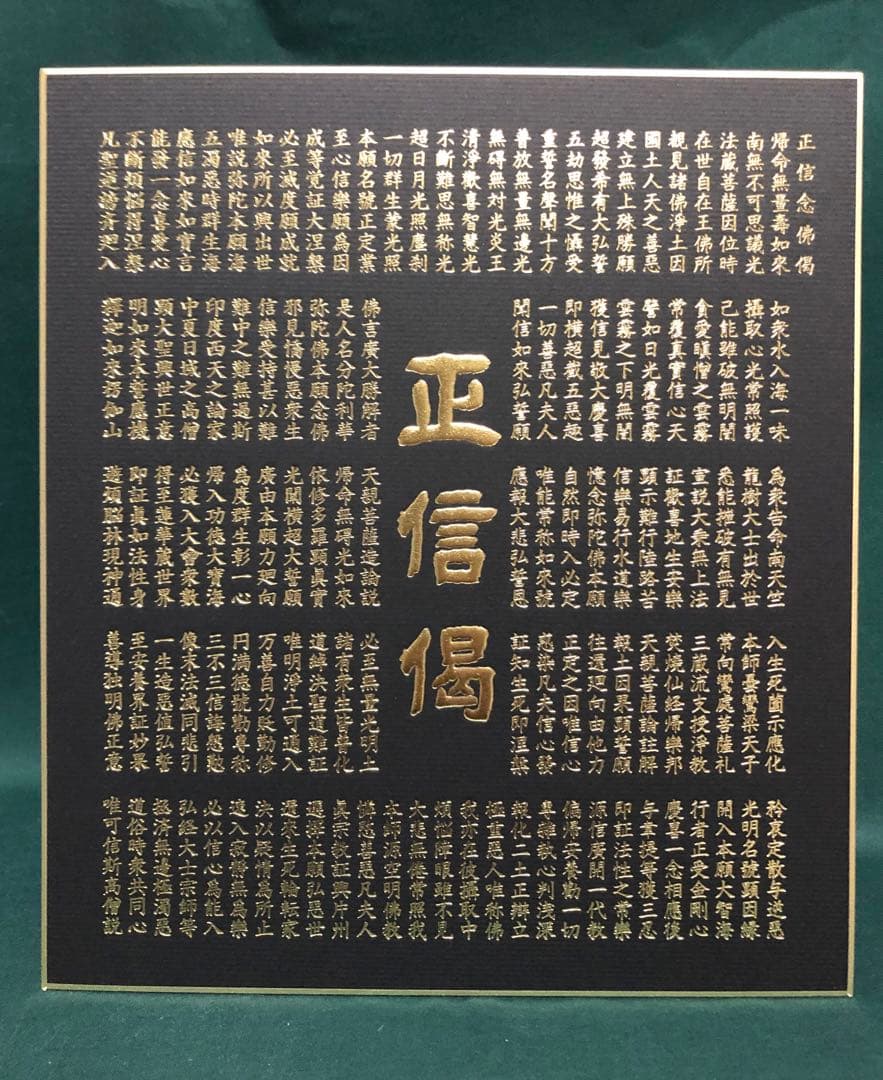 正信念佛偈
帰命無量壽如來
南無不可思議光
法蔵菩薩因位時
在世自在王佛所
覩見諸佛淨土因
國土人天之善惡
建立無上殊勝願
超發希有大弘誓
五劫思惟之攝受
重誓名聲聞十方
普放無量無邊光
無碍無対光炎王
清淨歡喜智慧光
不斷難思無称光
超日月光照塵刹
一切群生蒙光照
本願名號正定業
至心信樂願爲因
成等覚証大涅槃
必至滅度願成就
如來所以興出世
唯説弥陀本願海
五濁惡時群生海
應信如來如實言
能發一念喜愛心
不斷煩悩得涅槃
凡聖逆謗齊廻入
如衆水入海一味
攝取心光常照護
已能雖破無明闇
貪愛瞋憎之雲霧
常覆真實信心天
譬如日光覆雲霧
雲霧之下明無闇
獲信見敬大慶喜
即横超截五惡趣
一切善惡凡夫人
聞信如來弘誓願
佛言廣大勝解者
是人名分陀利華
弥陀佛本願念佛
邪見憍慢惡衆生
信樂受持甚以難
難中之難無過斯
印度西天之論家
中夏日域之高僧
顕大聖興世正意
明如來本誓應機
釋迦如來楞伽山
爲衆告命南天竺
龍樹大士出於世
悉能摧破有無見
宣説大乗無上法
証歡喜地生安樂
顕示難行陸路苦
信樂易行水道樂
憶念弥陀佛本願
自然即時入必定
唯能常称如來號
應報大悲弘誓恩
天親菩薩造論説
帰命無碍光如來
依修多羅顕真實
光闡横超大誓願
廣由本願力廻向
爲度群生彰一心
帰入功徳大寶海
必獲入大會衆數
得至蓮華蔵世界
即証真如法性身
遊煩悩林現神通
入生死薗示應化
本師曇鸞梁天子
常向鸞處菩薩礼
三蔵流支授淨教
焚焼仙経帰樂邦
天親菩薩論註解
報土因果顕誓願
往還廻向由他力
正定之因唯信心
惑染凡夫信心發
証知生死即涅槃
必至無量光明土
諸有衆生皆普化
道綽決聖道難証
唯明淨土可通入
万善自力貶勤修
円満徳號勸専称
三不三信誨慇懃
像末法滅同悲引
一生造惡値弘誓
至安養界証妙果
善導独明佛正意
矜哀定散与逆惡
光明名號顕因縁
開入本願大智海
行者正受金剛心
慶喜一念相應後
与韋提等獲三忍
即証法性之常樂
源信廣開一代教
偏帰安養勸一切
専雜執心判浅深
報化二土正辯立
極重惡人唯称佛
我亦在彼攝取中
煩悩障眼雖不見
大悲無倦常照我
本師源空明佛教
憐愍善惡凡夫人
真宗教証興片州
選擇本願弘惡世
還來生死輪転家
決以疑情爲所止
速入寂静無爲樂
必以信心爲能入
弘経大士宗師等
拯済無邊極濁惡
道俗時衆共同心
唯可信斯高僧説
正信偈